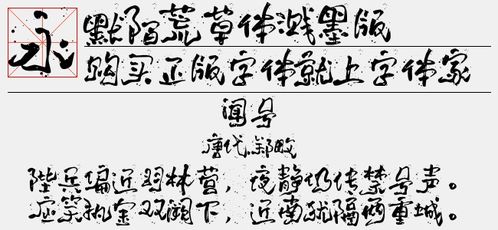 永
默陌荒草体溅墨版
购买正版字体就上字体家
闻号
唐代.郑畋
陛兵偏近羽林营，夜静仍传禁号声。
应笑执金双阙下，近南犹隔两重城。